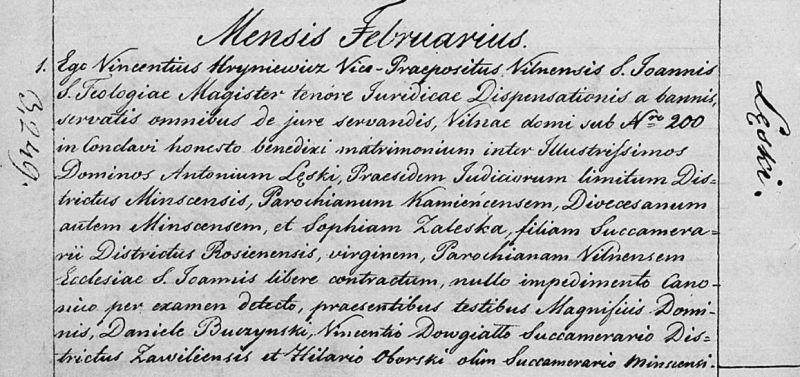 Mensis Februarius.
1. Ego Vincentius Hryniewicz Vice-Praepositus Vilnensis S. Joannis
S. Teologiae Magister tenore Juridicae Dispensationis a bannis,
servatis omnibus de jure servandis, Vilnae domi sub Nro 200
in Conclavi honesto benedixi matrimonium inter Illustrissimos
Dominos Antonium Lęski, Praesidem Judiciorum limitum Dis=
trictus Minscensis, Parochianum Kamieńcensem, Divecesanum
autem Minscensem, et Sophiam Zaleska, filiam Succamera=
rii Districtus Rosienensis, virginem, Parochianam Vilnensem
Ecclesiae S. Joannis libere contractum, nullo impedimento Cano=
nico per examen detecto, praesentibus testibus Magnificis Domi=
nis, Daniele Buczynski, Vincentio Dowgiatto Succamerario Dis=
trictus Zawileiensis et Hilario Oborski olim Succamerario Minscensi.
3249.
Lęski.